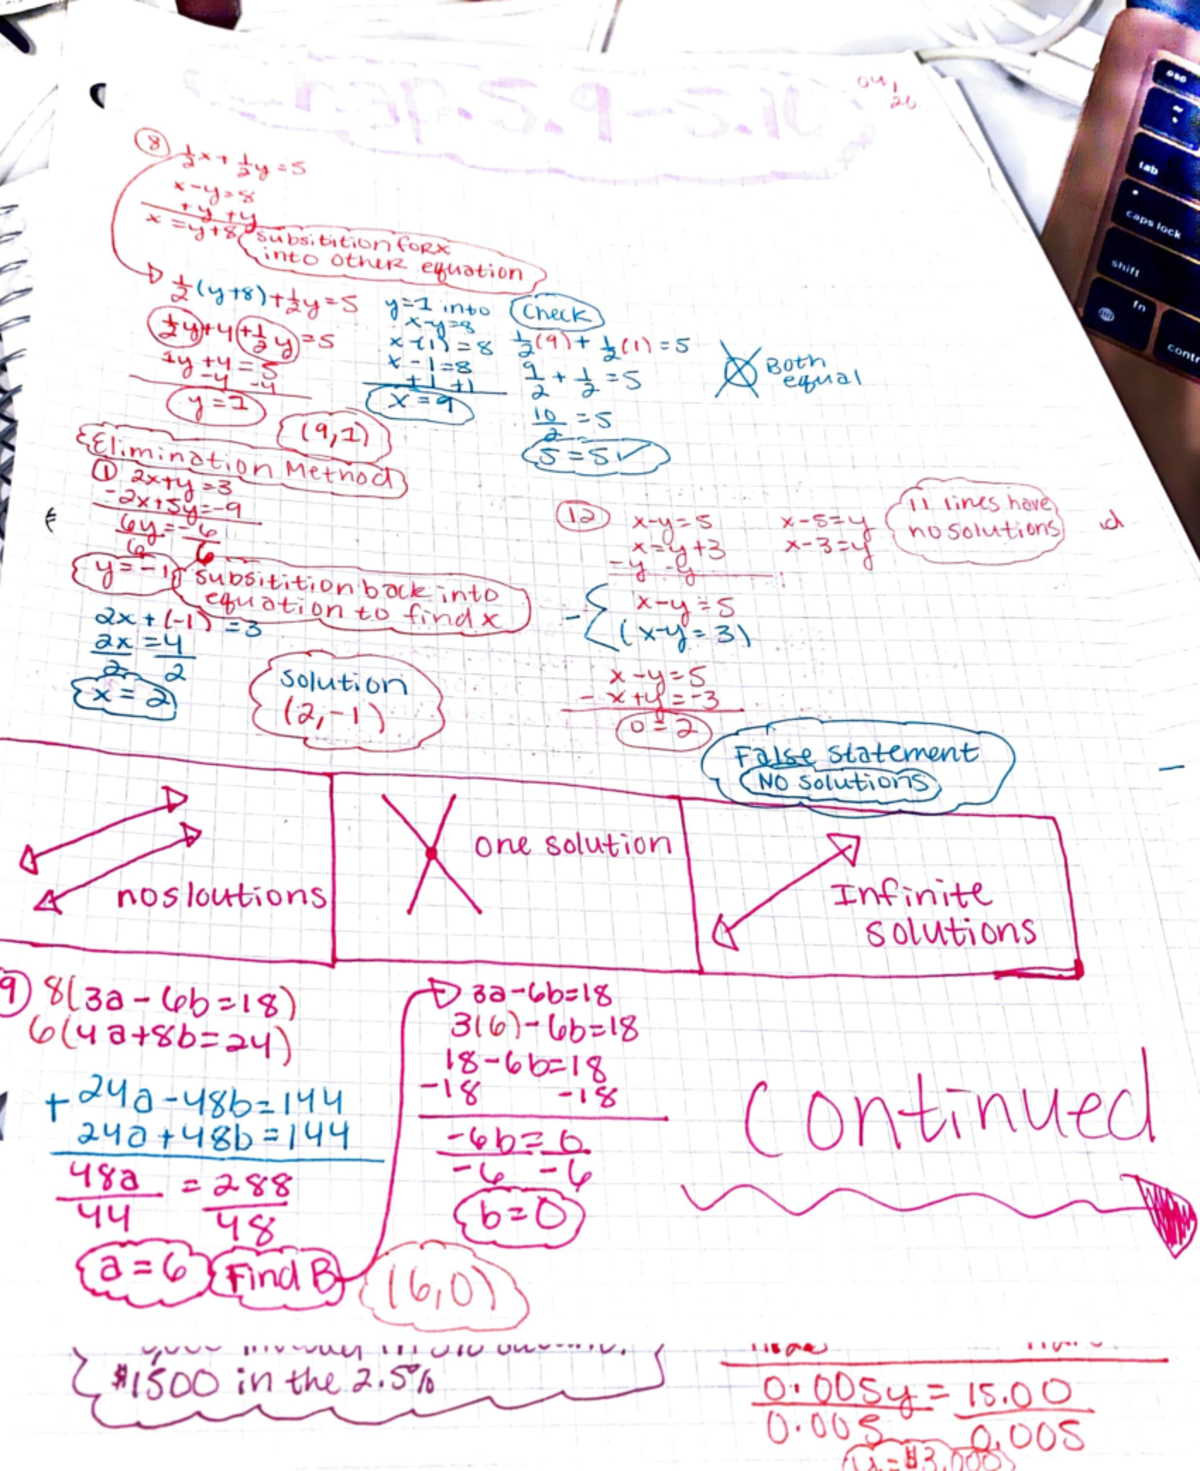 04/26
Chap. 5.9-5.10
8 1/2x + 1/2y = 5
x-y=8
+y +y
x = y+8 subsitition for x
into other equation
1/2(y+8)+1/2y=5
1/2y+4+1/2y=5
1y +4 = 5
-4 -4
y=1
(9,1)
y=1 into
x-y=8
x-(1)=8
x-1=8
+1 +1
x=9
Check
1/2(9)+1/2(1)=5
9/2 + 1/2 =5
10/2 =5
5=5✓
Both
equal
Elimination Method
① 2x+y=3
-2x+5y=-9
6y=-6
6 6
y=-1 subsitition back into
equation to find x
2x+(-1)=3
2x=4
2 2
x=2
Solution
(2,-1)
12 x-y=5
x=y+3
-y -y
x-5=y
x-3=y
11 lines have
no solutions
x-y=5
-(x-y=3)
x-y=5
-x+y=-3
0=2
False Statement
NO Solutions
nosloutions
one solution
Infinite
solutions
9) 8(3a-6b=18)
6(4a+8b=24)
+24a-48b=144
24a+48b=144
48a = 288
44 48
a=6 Find B
3a-6b=18
3(6)-6b=18
18-6b=18
-18 -18
-6b=0
-6 -6
b=0
(6,0)
Continued
$1500 in the 2.5%
0.005y = 15.00
0.005 0.005
y=$3,000
esc
~
tab
caps lock
shift
fn
contr